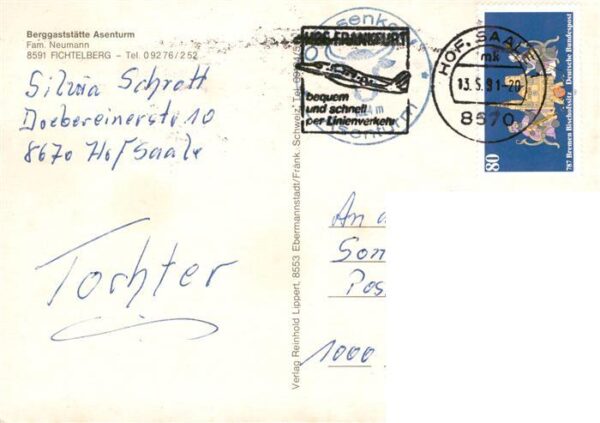 Berggaststätte Asenturm
Fam. Neumann
8591 FICHTELBERG – Tel. 09276/252
Silvia Schrott
Doebereinerstr 10
8670 Hof Saale
Tochter
Verlag Reinhold Lippert, 8553 Ebermannstadt/Fränk. Schweiz, Tel.
FRANKFURT
bequem
und schnell
per Linienverkehr
Asenturm
HOF, SAALE
mk
13.5.91-20
8670
80
787 Bremen Bischofssitz Deutsche Bundespost
An
Son
Pos
1000